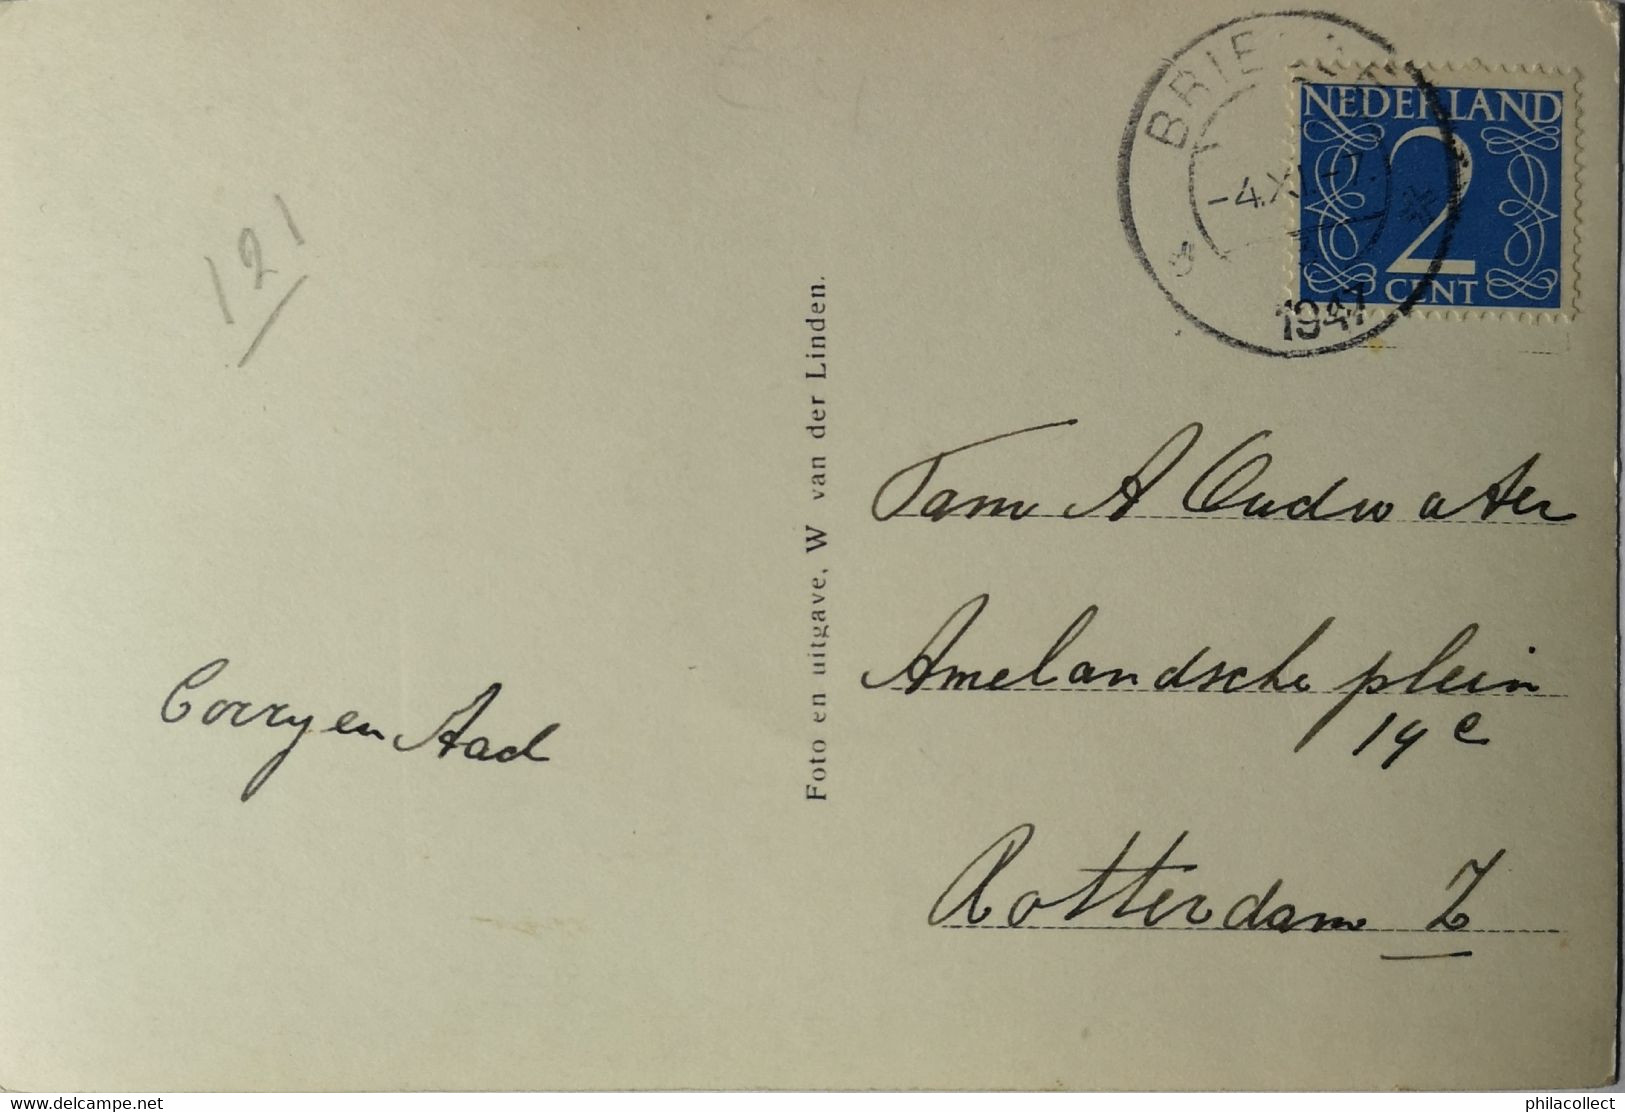 121
BRIELLE
-4.XI.-7.
1947
NEDERLAND
2
CENT
Foto en uitgave, W van der Linden.
Fam A Oudwater
Amelandsche plein
19c
Rotterdam Z
Corry en Aad
www.delcampe.net
philacollect